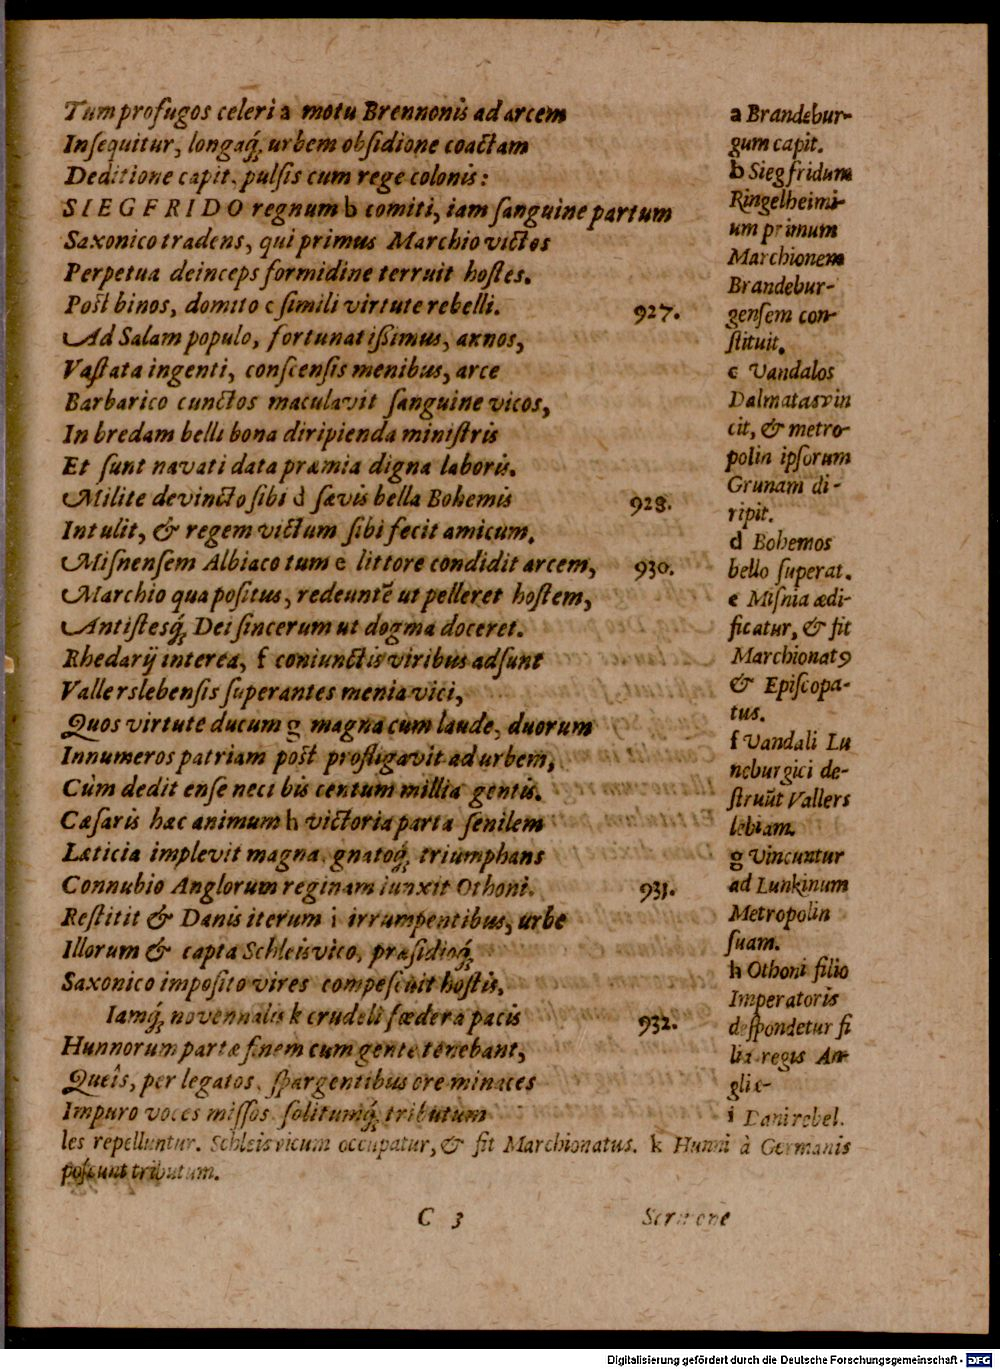 Tum profugos celeri a motu Brennonis ad arcem
Inſequitur, longaq́; urbem obſidione coactam
Deditione capit, pulſis cum rege colonis:
SIEGFRIDO regnum b comiti, iam ſanguine partum
Saxonico tradens, qui primus Marchio victos
Perpetua deinceps formidine terruit hoſtes.
Poſt binos, domito c ſimili virtute rebelli. 927.
Ad Salam populo, fortunatiſsimus, annos,
Vaſtata ingenti, conſcenſis menibus, arce
Barbarico cunctos maculavit ſanguine vicos,
In bredam belli bona diripienda miniſtris
Et ſunt navati data præmia digna laboris.
Milite devincto ſibi d ſævis bella Bohemis 928.
Intulit, & regem victum ſibi fecit amicum.
Miſnenſem Albiaco tum e littore condidit arcem, 930.
Marchio qua poſitus, redeuntē ut pelleret hoſtem,
Antiſtesq́; Dei ſincerum ut dogma doceret.
Rhedarij interea, f coniunctis viribus adſunt
Vallerslebenſis ſuperantes menia vici,
Quos virtute ducum g magna cum laude, duorum
Innumeros patriam poſt profligavit ad urbem,
Cùm dedit enſe neci bis centum millia gentis.
Cæſaris hæc animum h victoria parta ſenilem
Læticia implevit magna, gnatoq́; triumphans
Connubio Anglorum reginam iunxit Othoni. 931.
Reſtitit & Danis iterum i irrumpentibus, urbe
Illorum & capta Schleisvico, præſidioq́;
Saxonico impoſito vires compeſcuit hoſtis.
Iamq́; novennalis k crudeli fœdera pacis 932.
Hunnorum partæ finem cum gente tenebant,
Queîs, per legatos, ſpargentibus ore minaces
Impuro voces miſſos, ſolitumq́; tributum
a Brandebur-
gum capit.
b Siegfridum
Ringelheimi-
um primum
Marchionem
Brandebur-
genſem con-
ſtituit.
c Vandalos
Dalmatas vin
cit, & metro-
polin ipſorum
Grunam di-
ripit.
d Bohemos
bello ſuperat.
e Miſnia ædi-
ficatur, & fit
Marchionatꝰ
& Epiſcopa-
tus.
f Vandali Lu
neburgici de-
ſtruūt Vallers
lebiam.
g Vincuntur
ad Lunkinum
Metropolin
ſuam.
h Othoni filio
Imperatoris
deſpondetur fi
lia regis An-
gliæ-
i Dani rebel.
les repelluntur. Schleisvicum occupatur, & fit Marchionatus. k Hunni à Germanis
poſcunt tributum.
C 3 Sermone
Digitalisierung gefördert durch die Deutsche Forschungsgemeinschaft - DFG